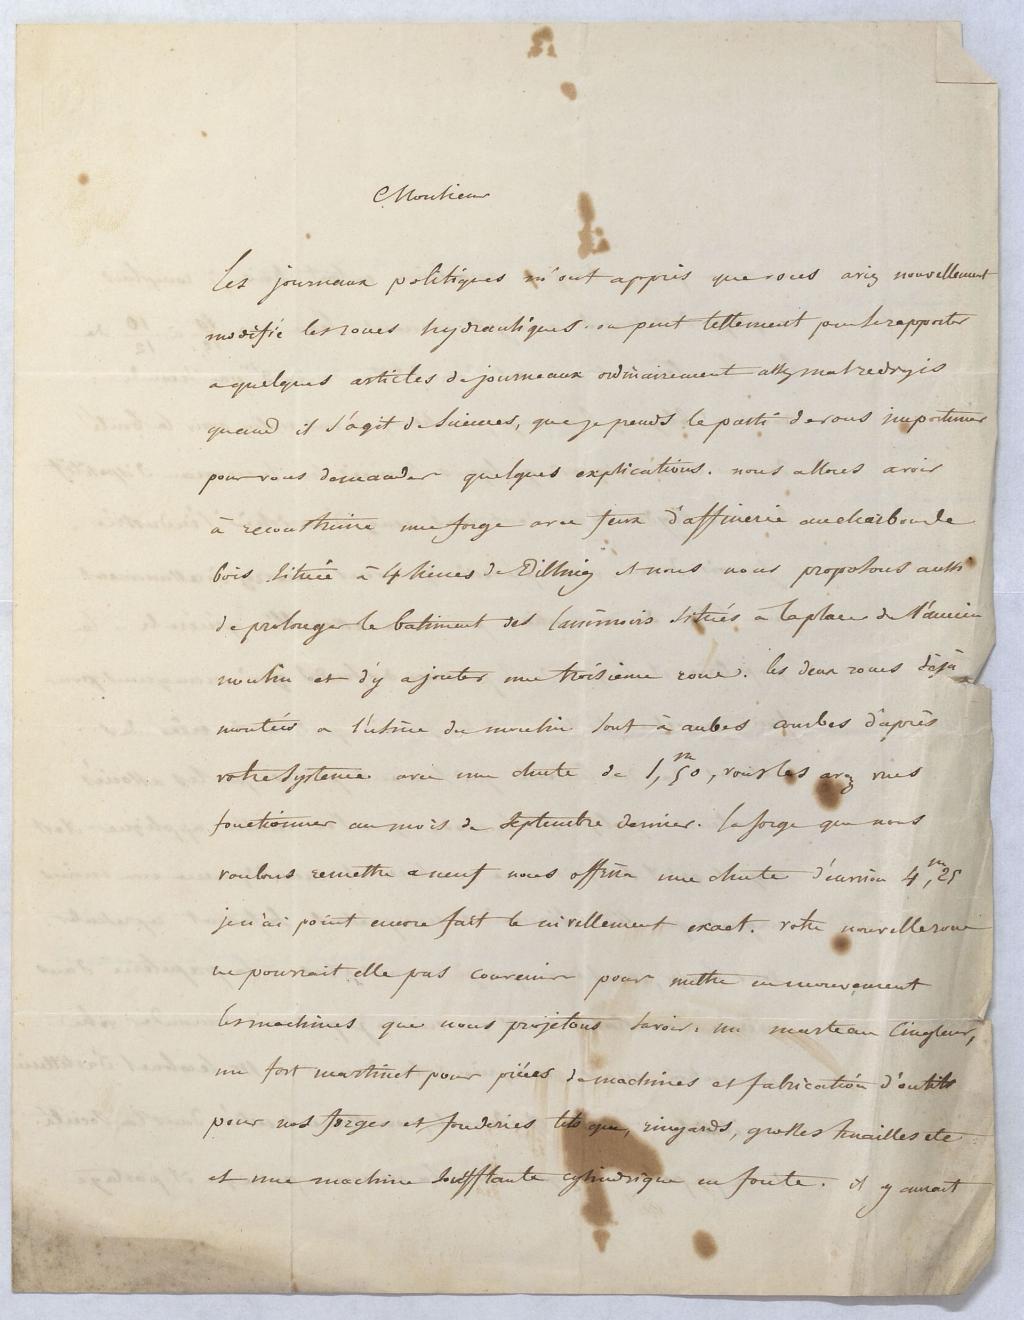 Monsieur
Les journaux politiques m'ont appris que vous aviez nouvellement
modifié les roues hydrauliques. on peut tellement peu se rapporter
a quelques articles de journeaux ordinairement assez mal redigés
quand il s'agit de Sciences, que je prends le parti de vous importuner
pour vous demander quelques explications. nous allons avoir
à reconstruire une forge avec feux d'affinerie au charbon de
bois Située à 4 lieues de Dilling et nous nous proposons aussi
de prolonger le batiment des Laminoirs Situés a la place de l'ancien
moulin et d'y ajouter une troisieme roue. les deux roues déjà
montées a l'usine du moulin Sont à aubes courbes d'après
votre Systeme avec une chute de 1,m50, vous les avez vues
fonctionner au mois de Septembre dernier. la forge que nous
voulons remettre a neuf nous offrira une chute d'environ 4,m25
je n'ai point encore fait le nivellement exact. votre nouvelle roue
ne pourrait elle pas convenir pour mettre en mouvement
les machines que nous projetons Savoir: un marteau Cingleur,
un fort martinet pour pièces de machines et fabrication d'outils
pour nos forges et fonderies tels que, ringards, grosses tenailles etc
et une machine Soufflante cylindrique en fonte. il y aurait